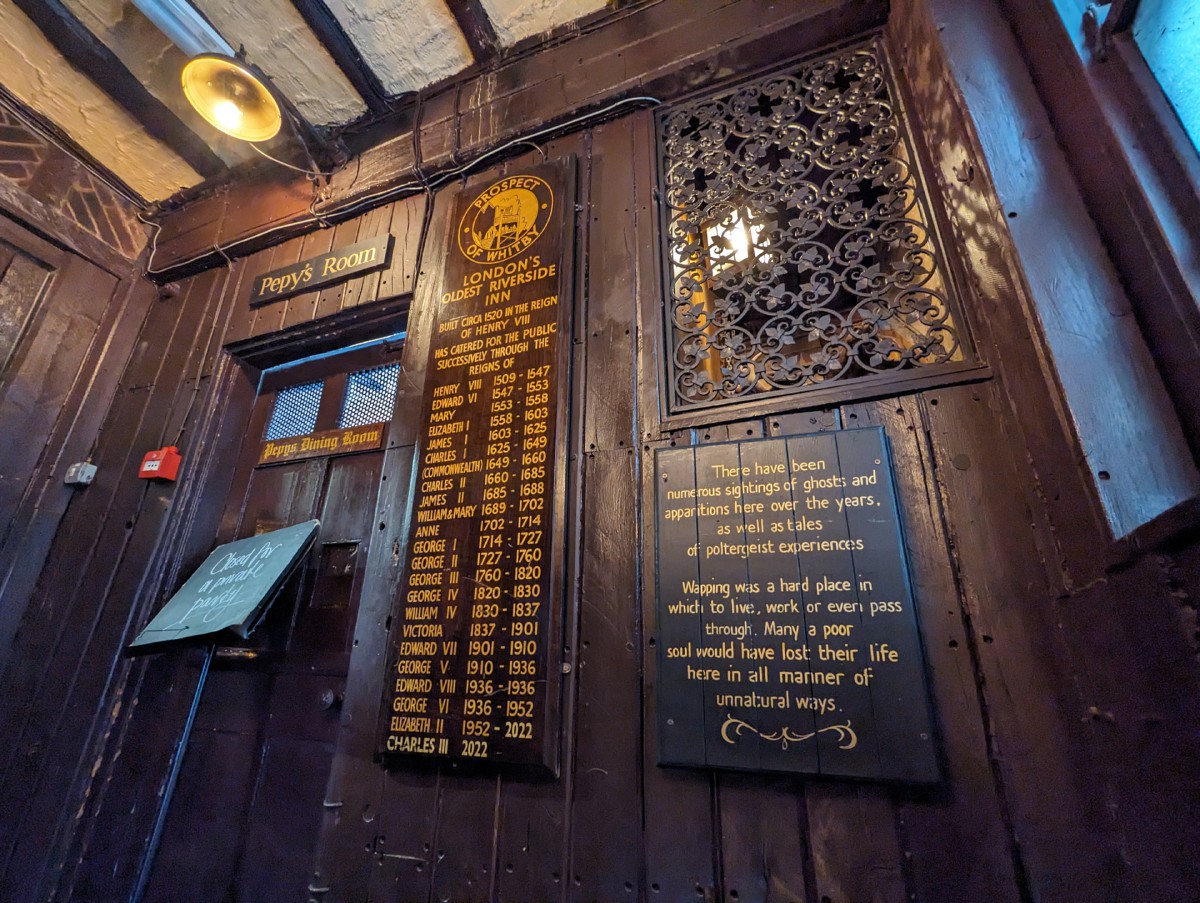 Pepy's Room
Pepys Dining Room
Closed for
a private
party
PROSPECT
OF WHITBY
LONDON'S
OLDEST RIVERSIDE
INN
BUILT CIRCA 1520 IN THE REIGN
OF HENRY VIII
HAS CATERED FOR THE PUBLIC
SUCCESSIVELY THROUGH THE
REIGNS OF
HENRY VIII 1509 - 1547
EDWARD VI 1547 - 1553
MARY 1553 - 1558
ELIZABETH I 1558 - 1603
JAMES I 1603 - 1625
CHARLES I 1625 - 1649
(COMMONWEALTH) 1649 - 1660
CHARLES II 1660 - 1685
JAMES II 1685 - 1688
WILLIAM & MARY 1689 - 1702
ANNE 1702 - 1714
GEORGE I 1714 - 1727
GEORGE II 1727 - 1760
GEORGE III 1760 - 1820
GEORGE IV 1820 - 1830
WILLIAM IV 1830 - 1837
VICTORIA 1837 - 1901
EDWARD VII 1901 - 1910
GEORGE V 1910 - 1936
EDWARD VIII 1936 - 1936
GEORGE VI 1936 - 1952
ELIZABETH II 1952 - 2022
CHARLES III 2022
There have been
numerous sightings of ghosts and
apparitions here over the years,
as well as tales
of poltergeist experiences
Wapping was a hard place in
which to live, work or even pass
through. Many a poor
soul would have lost their life
here in all manner of
unnatural ways.